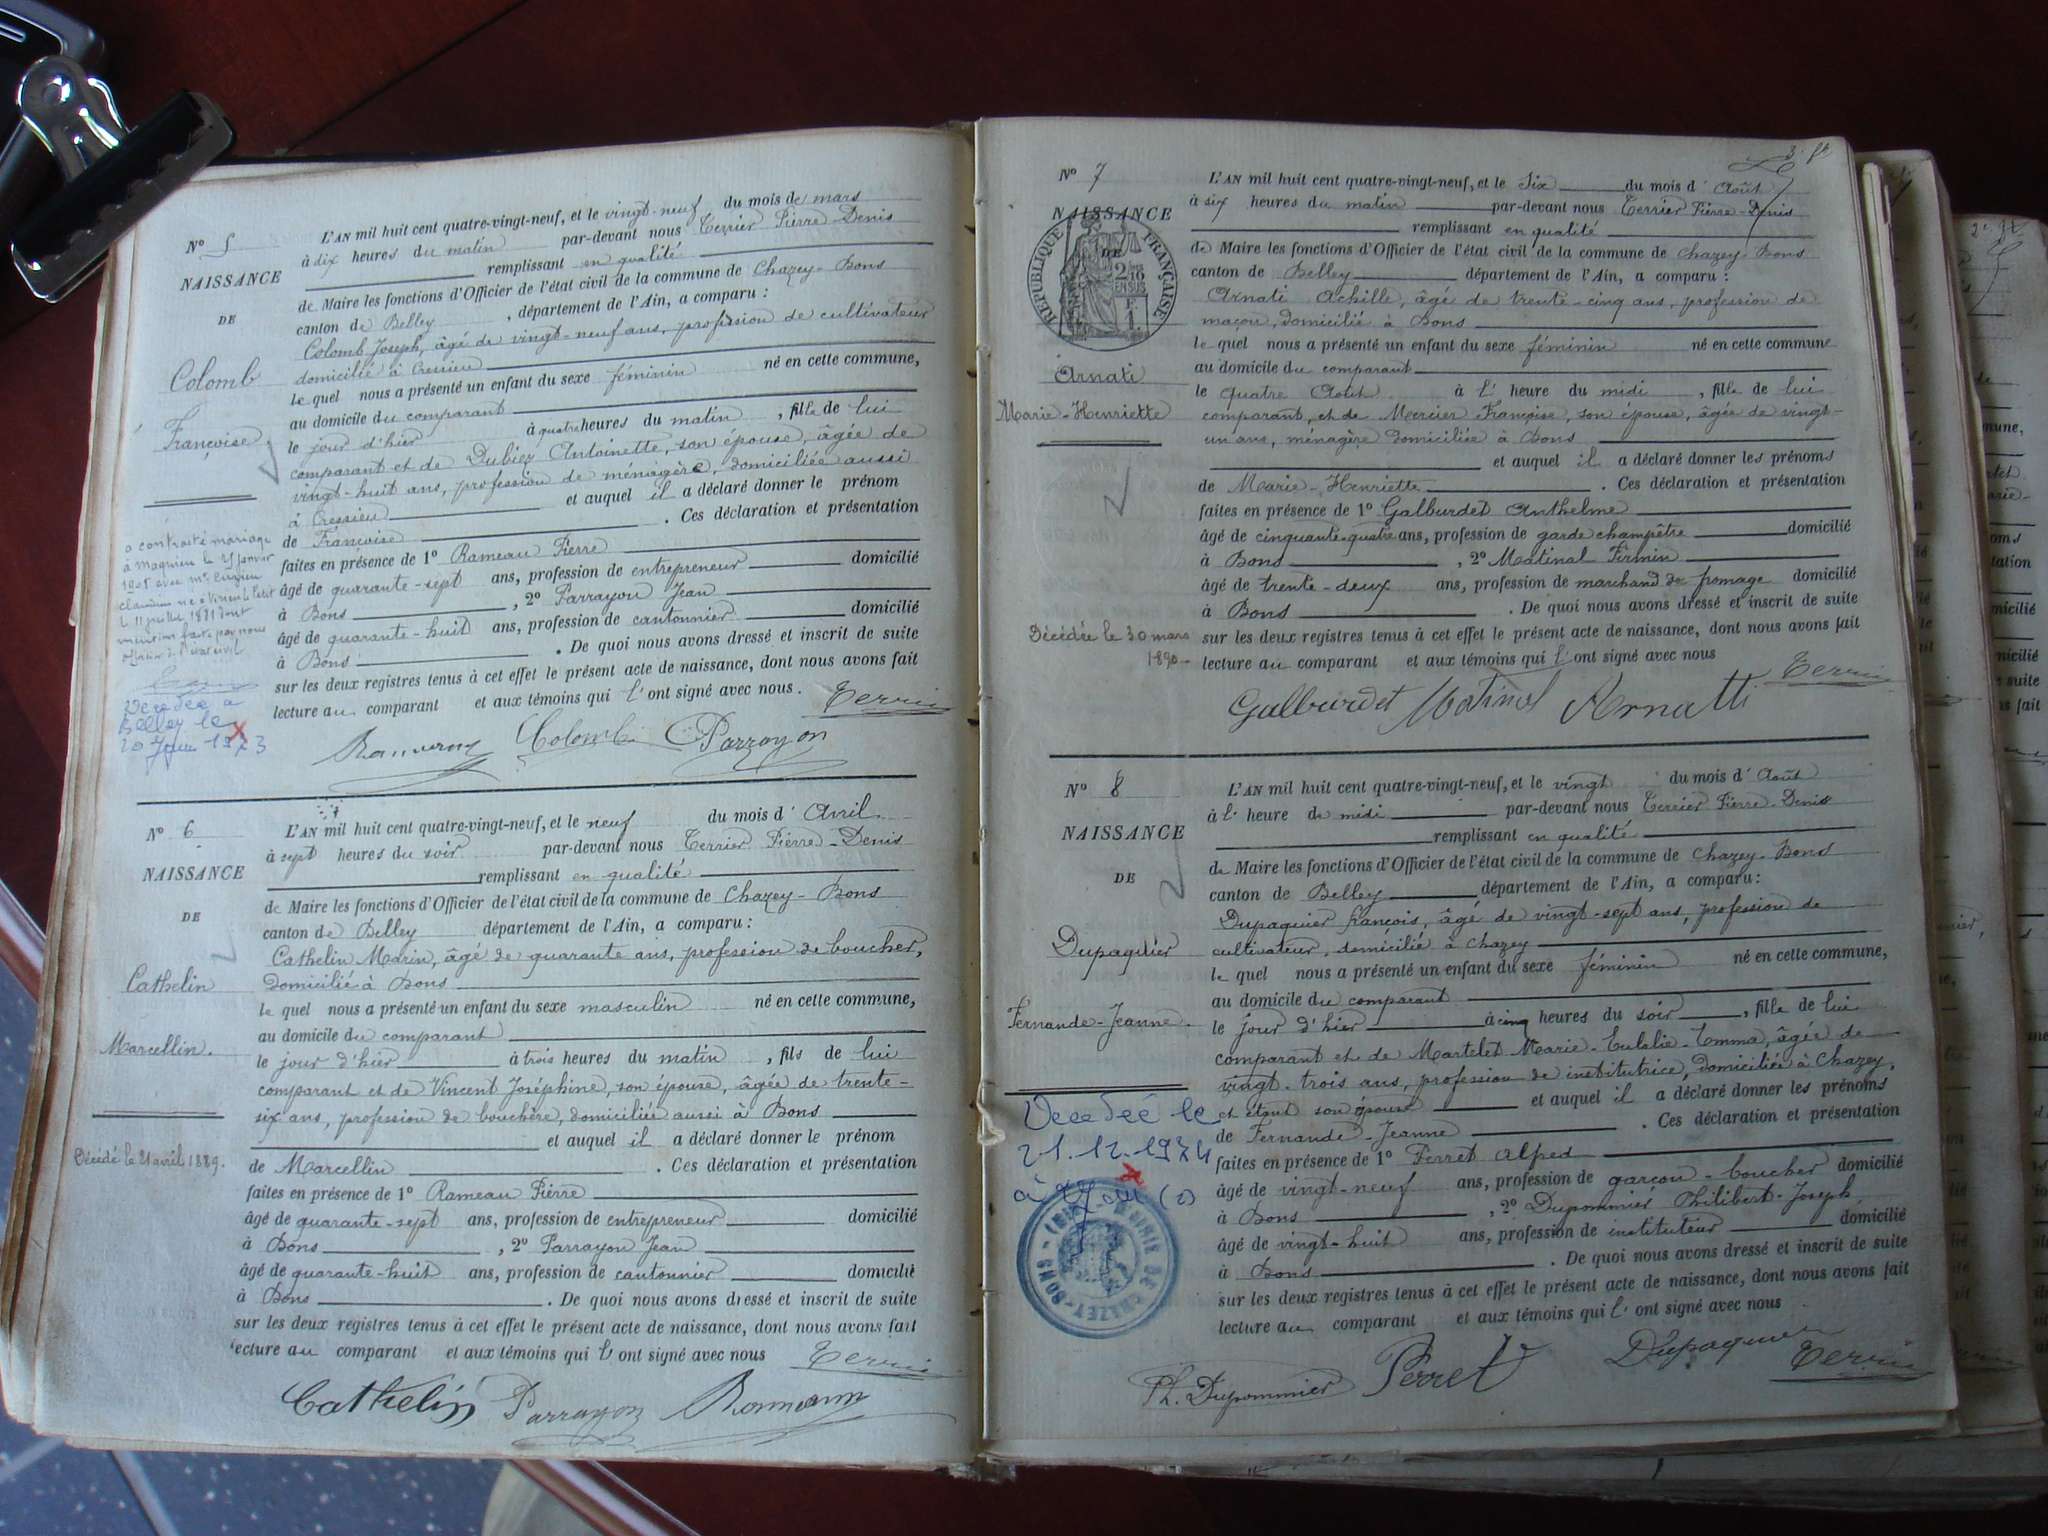 N° 5
NAISSANCE
DE
Colomb
Françoise
L'AN mil huit cent quatre-vingt-neuf, et le vingt-neuf du mois de mars
à dix heures du matin par-devant nous Terrier Pierre-Denis
remplissant en qualité
de Maire les fonctions d'Officier de l'état civil de la commune de Chazey-Bons
canton de Belley, département de l'Ain, a comparu :
Colomb Joseph, âgé de vingt-neuf ans, profession de cultivateur
domicilié à Cressieu
le quel nous a présenté un enfant du sexe féminin né en cette commune,
au domicile du comparant
le jour d'hier à quatre heures du matin, fille de lui
comparant et de Dubiez Antoinette, son épouse, âgée de
vingt-huit ans, profession de ménagère, domiciliée aussi
à Cressieu et auquel il a déclaré donner le prénom
de Françoise. Ces déclaration et présentation
faites en présence de 1° Rameau Pierre
âgé de quarante-sept ans, profession de entrepreneur domicilié
à Bons, 2° Parrayon Jean
âgé de quarante-huit ans, profession de cantonnier domicilié
à Bons. De quoi nous avons dressé et inscrit de suite
sur les deux registres tenus à cet effet le présent acte de naissance, dont nous avons fait
lecture au comparant et aux témoins qui l'ont signé avec nous.
Terrier
Rameau Colomb Parrayon
a contracté mariage
à Magnieu le 25 janvier
1905 avec Mr
Claudius né à Virieu le Petit
le 11 juillet 1881 dont
mention faite par nous
officier de l'état civil
Décédée à
Belley le
20 Juin 1973
N° 6
NAISSANCE
DE
Cathelin
Marcellin.
Décédé le 21 avril 1889.
L'AN mil huit cent quatre-vingt-neuf, et le neuf du mois d'Avril
à sept heures du soir par-devant nous Terrier Pierre-Denis
remplissant en qualité
de Maire les fonctions d'Officier de l'état civil de la commune de Chazey-Bons
canton de Belley département de l'Ain, a comparu :
Cathelin Marin, âgé de quarante ans, profession de boucher,
domicilié à Bons
le quel nous a présenté un enfant du sexe masculin né en cette commune,
au domicile du comparant
le jour d'hier à trois heures du matin, fils de lui
comparant et de Vincent Joséphine, son épouse, âgée de trente-
six ans, profession de bouchère, domiciliée aussi à Bons
et auquel il a déclaré donner le prénom
de Marcellin. Ces déclaration et présentation
faites en présence de 1° Rameau Pierre
âgé de quarante-sept ans, profession de entrepreneur domicilié
à Bons, 2° Parrayon Jean
âgé de quarante-huit ans, profession de cantonnier domicilié
à Bons. De quoi nous avons dressé et inscrit de suite
sur les deux registres tenus à cet effet le présent acte de naissance, dont nous avons fait
lecture au comparant et aux témoins qui l'ont signé avec nous
Terrier
Cathelin Parrayon Rameau
N° 7
NAISSANCE
DE
RÉPUBLIQUE FRANÇAISE
Arnati
Marie-Henriette
Décédée le 30 mars
1890
L'AN mil huit cent quatre-vingt-neuf, et le Six du mois d'Août
à six heures du matin par-devant nous Terrier Pierre-Denis
remplissant en qualité
de Maire les fonctions d'Officier de l'état civil de la commune de Chazey-Bons
canton de Belley département de l'Ain, a comparu :
Arnati Achille, âgé de trente-cinq ans, profession de
maçon, domicilié à Bons
le quel nous a présenté un enfant du sexe féminin né en cette commune
au domicile du comparant
le quatre Août à l'heure du midi, fille de lui
comparant, et de Mercier Françoise, son épouse, âgée de vingt-
un ans, ménagère domiciliée à Bons
et auquel il a déclaré donner les prénoms
de Marie-Henriette. Ces déclaration et présentation
faites en présence de 1° Galburdet Anthelme
âgé de cinquante-quatre ans, profession de garde champêtre domicilié
à Bons, 2° Matinal Firmin
âgé de trente-deux ans, profession de marchand de fromage domicilié
à Bons. De quoi nous avons dressé et inscrit de suite
sur les deux registres tenus à cet effet le présent acte de naissance, dont nous avons fait
lecture au comparant et aux témoins qui l'ont signé avec nous
Terrier
Galburdet Matinal Arnatti
N° 8
NAISSANCE
DE
Dupaquier
Fernande-Jeanne.
Décédée le
21.12.1974
L'AN mil huit cent quatre-vingt-neuf, et le vingt du mois d'Août
à l'heure de midi par-devant nous Terrier Pierre-Denis
remplissant en qualité
de Maire les fonctions d'Officier de l'état civil de la commune de Chazey-Bons
canton de Belley département de l'Ain, a comparu :
Dupaquier François, âgé de vingt-sept ans, profession de
cultivateur, domicilié à Chazey
le quel nous a présenté un enfant du sexe féminin né en cette commune,
au domicile du comparant
le jour d'hier à cinq heures du soir, fille de lui
comparant et de Martelet Marie-Eulalie-Emma, âgée de
vingt-trois ans, profession de institutrice, domiciliée à Chazey,
et étant son épouse et auquel il a déclaré donner les prénoms
de Fernande-Jeanne. Ces déclaration et présentation
faites en présence de 1° Perret Alfred
âgé de vingt-neuf ans, profession de garçon-boucher domicilié
à Bons, 2° Dupommier Philibert-Joseph
âgé de vingt-huit ans, profession de instituteur domicilié
à Bons. De quoi nous avons dressé et inscrit de suite
sur les deux registres tenus à cet effet le présent acte de naissance, dont nous avons fait
lecture au comparant et aux témoins qui l'ont signé avec nous
MAIRIE DE CHAZEY-BONS - (AIN)
Ph. Dupommier Perret Dupaquier Terrier